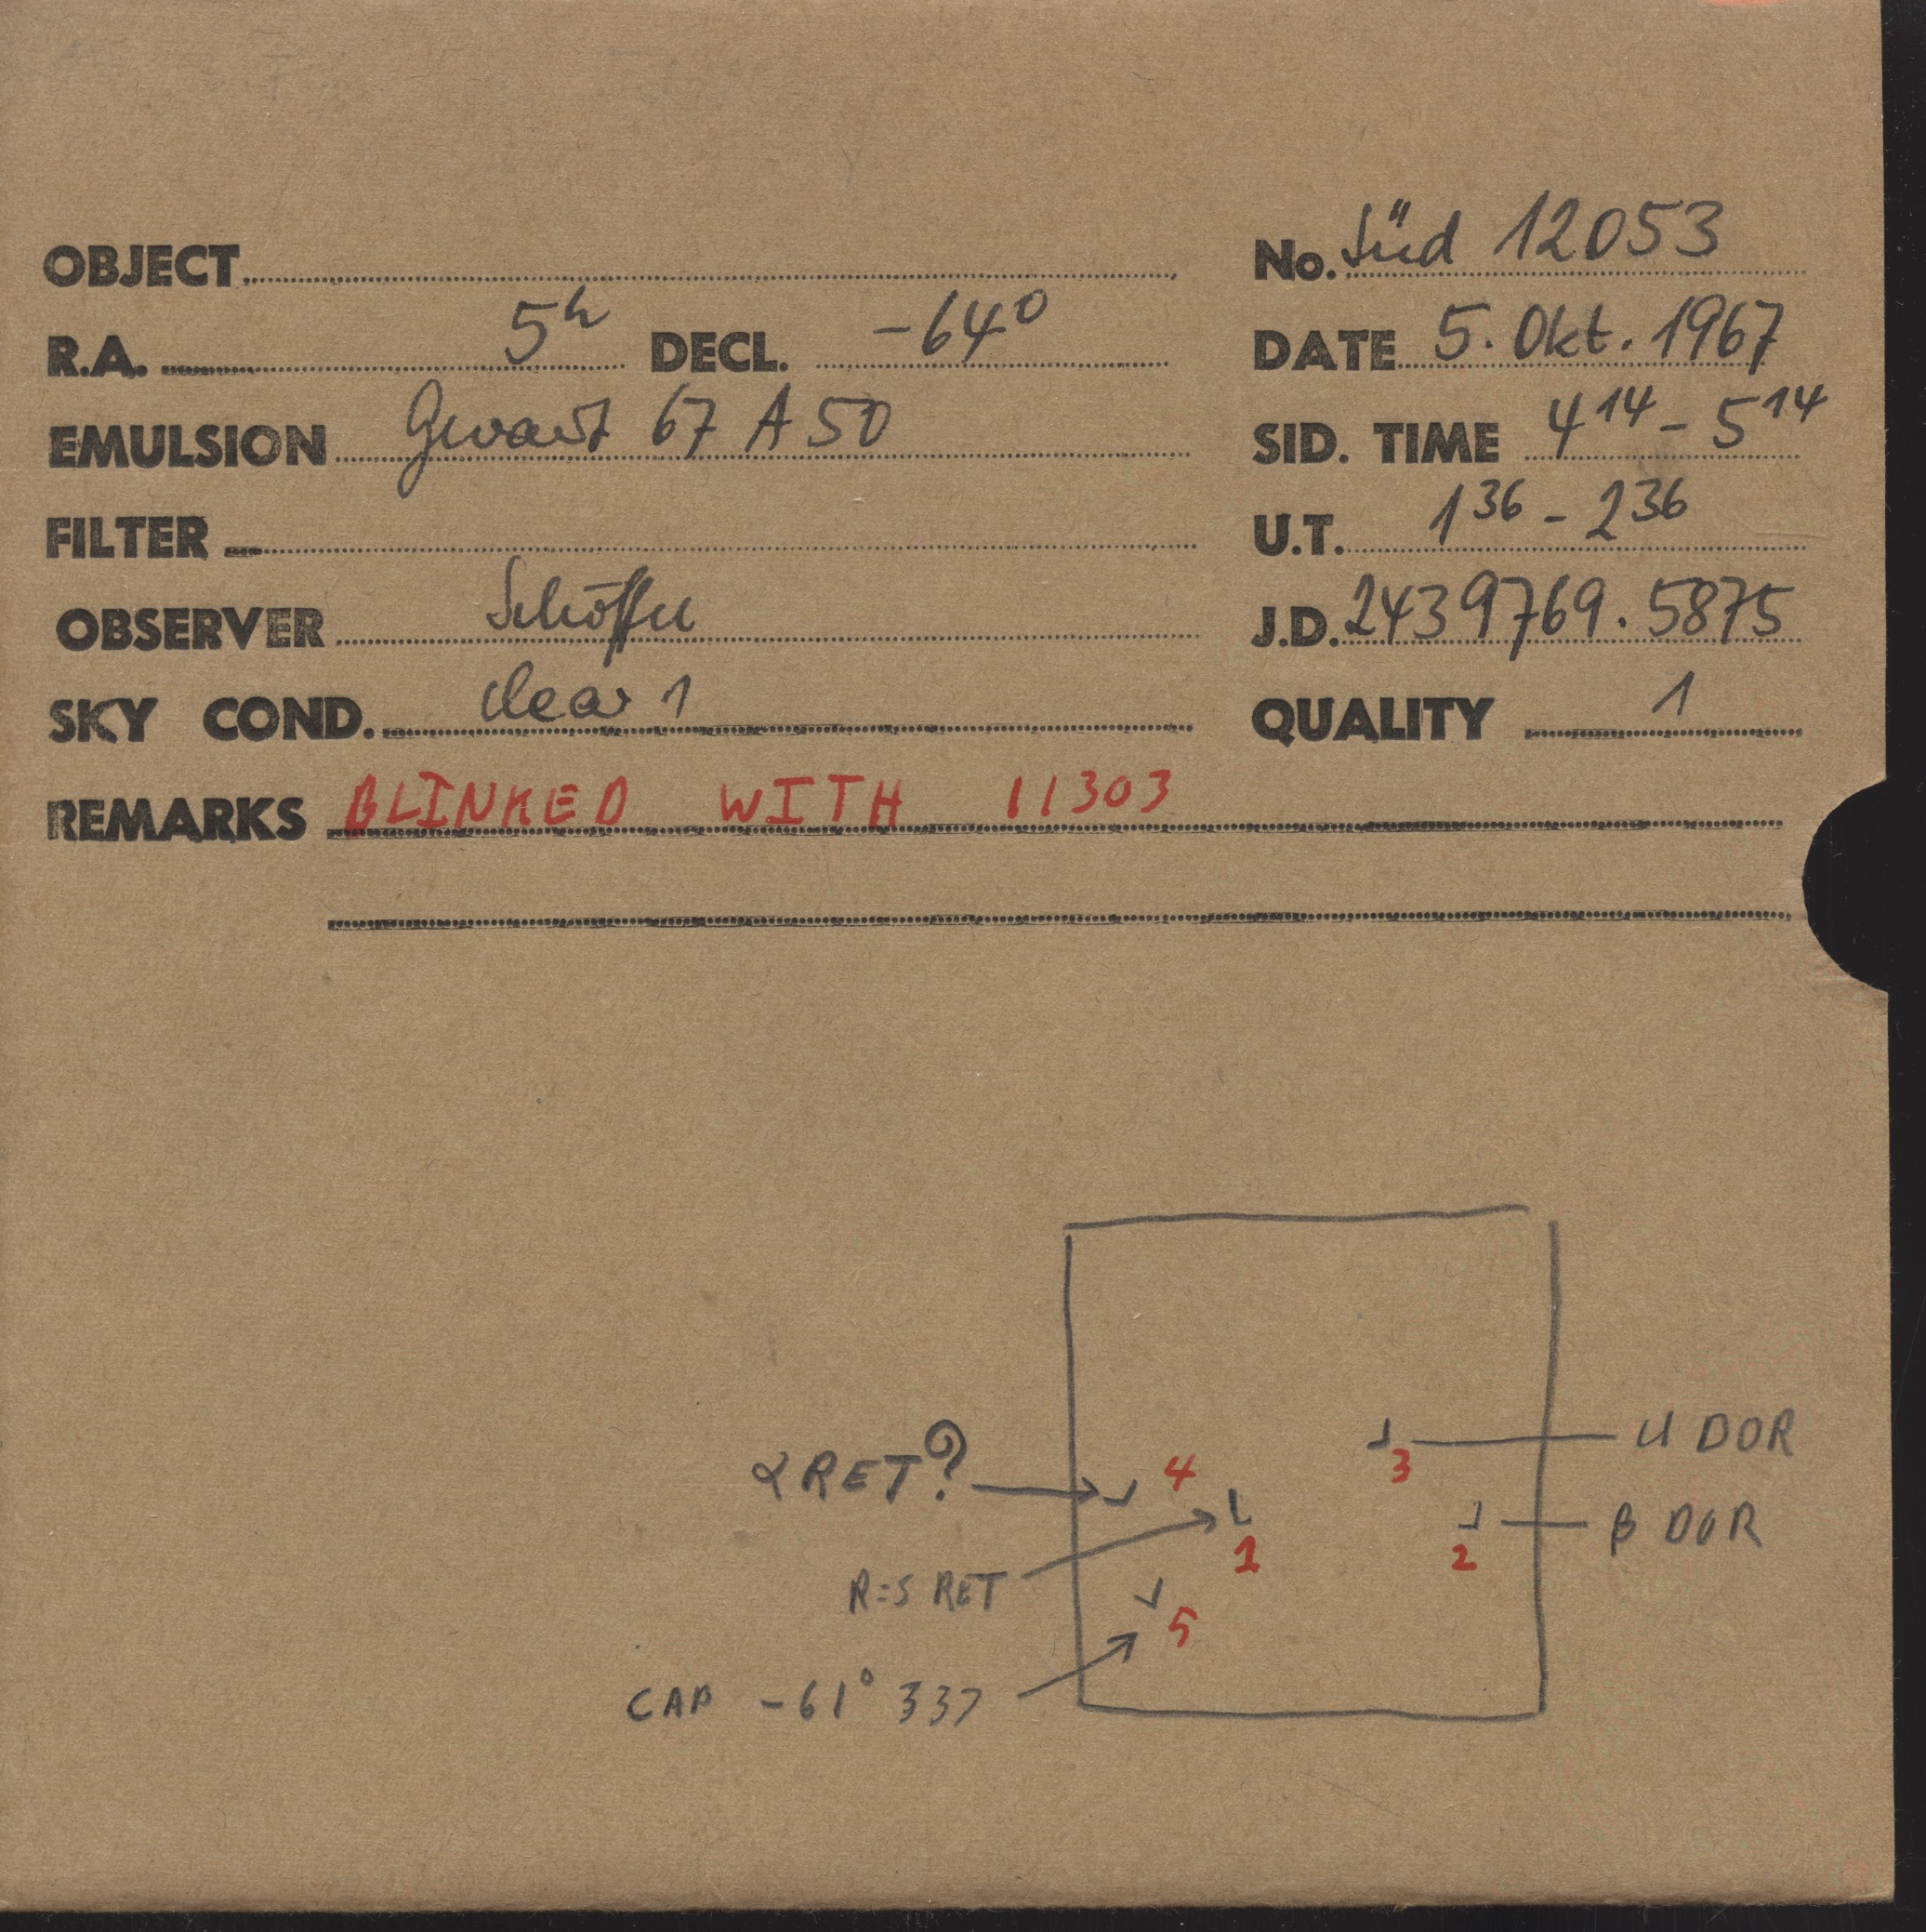 OBJECT No. Süd 12053
R.A. 5h DECL. -64° DATE 5. Okt. 1967
EMULSION Gevaert 67 A 50 SID. TIME 4 14 - 5 14
FILTER U.T. 1 36 - 2 36
OBSERVER Schöffel J.D. 2439769.5875
SKY COND. clear 1 QUALITY 1
REMARKS BLINKED WITH 11303
3 U DOR
α RET? 4
1 2 β DOR
R=S RET
5
CAP -61° 337